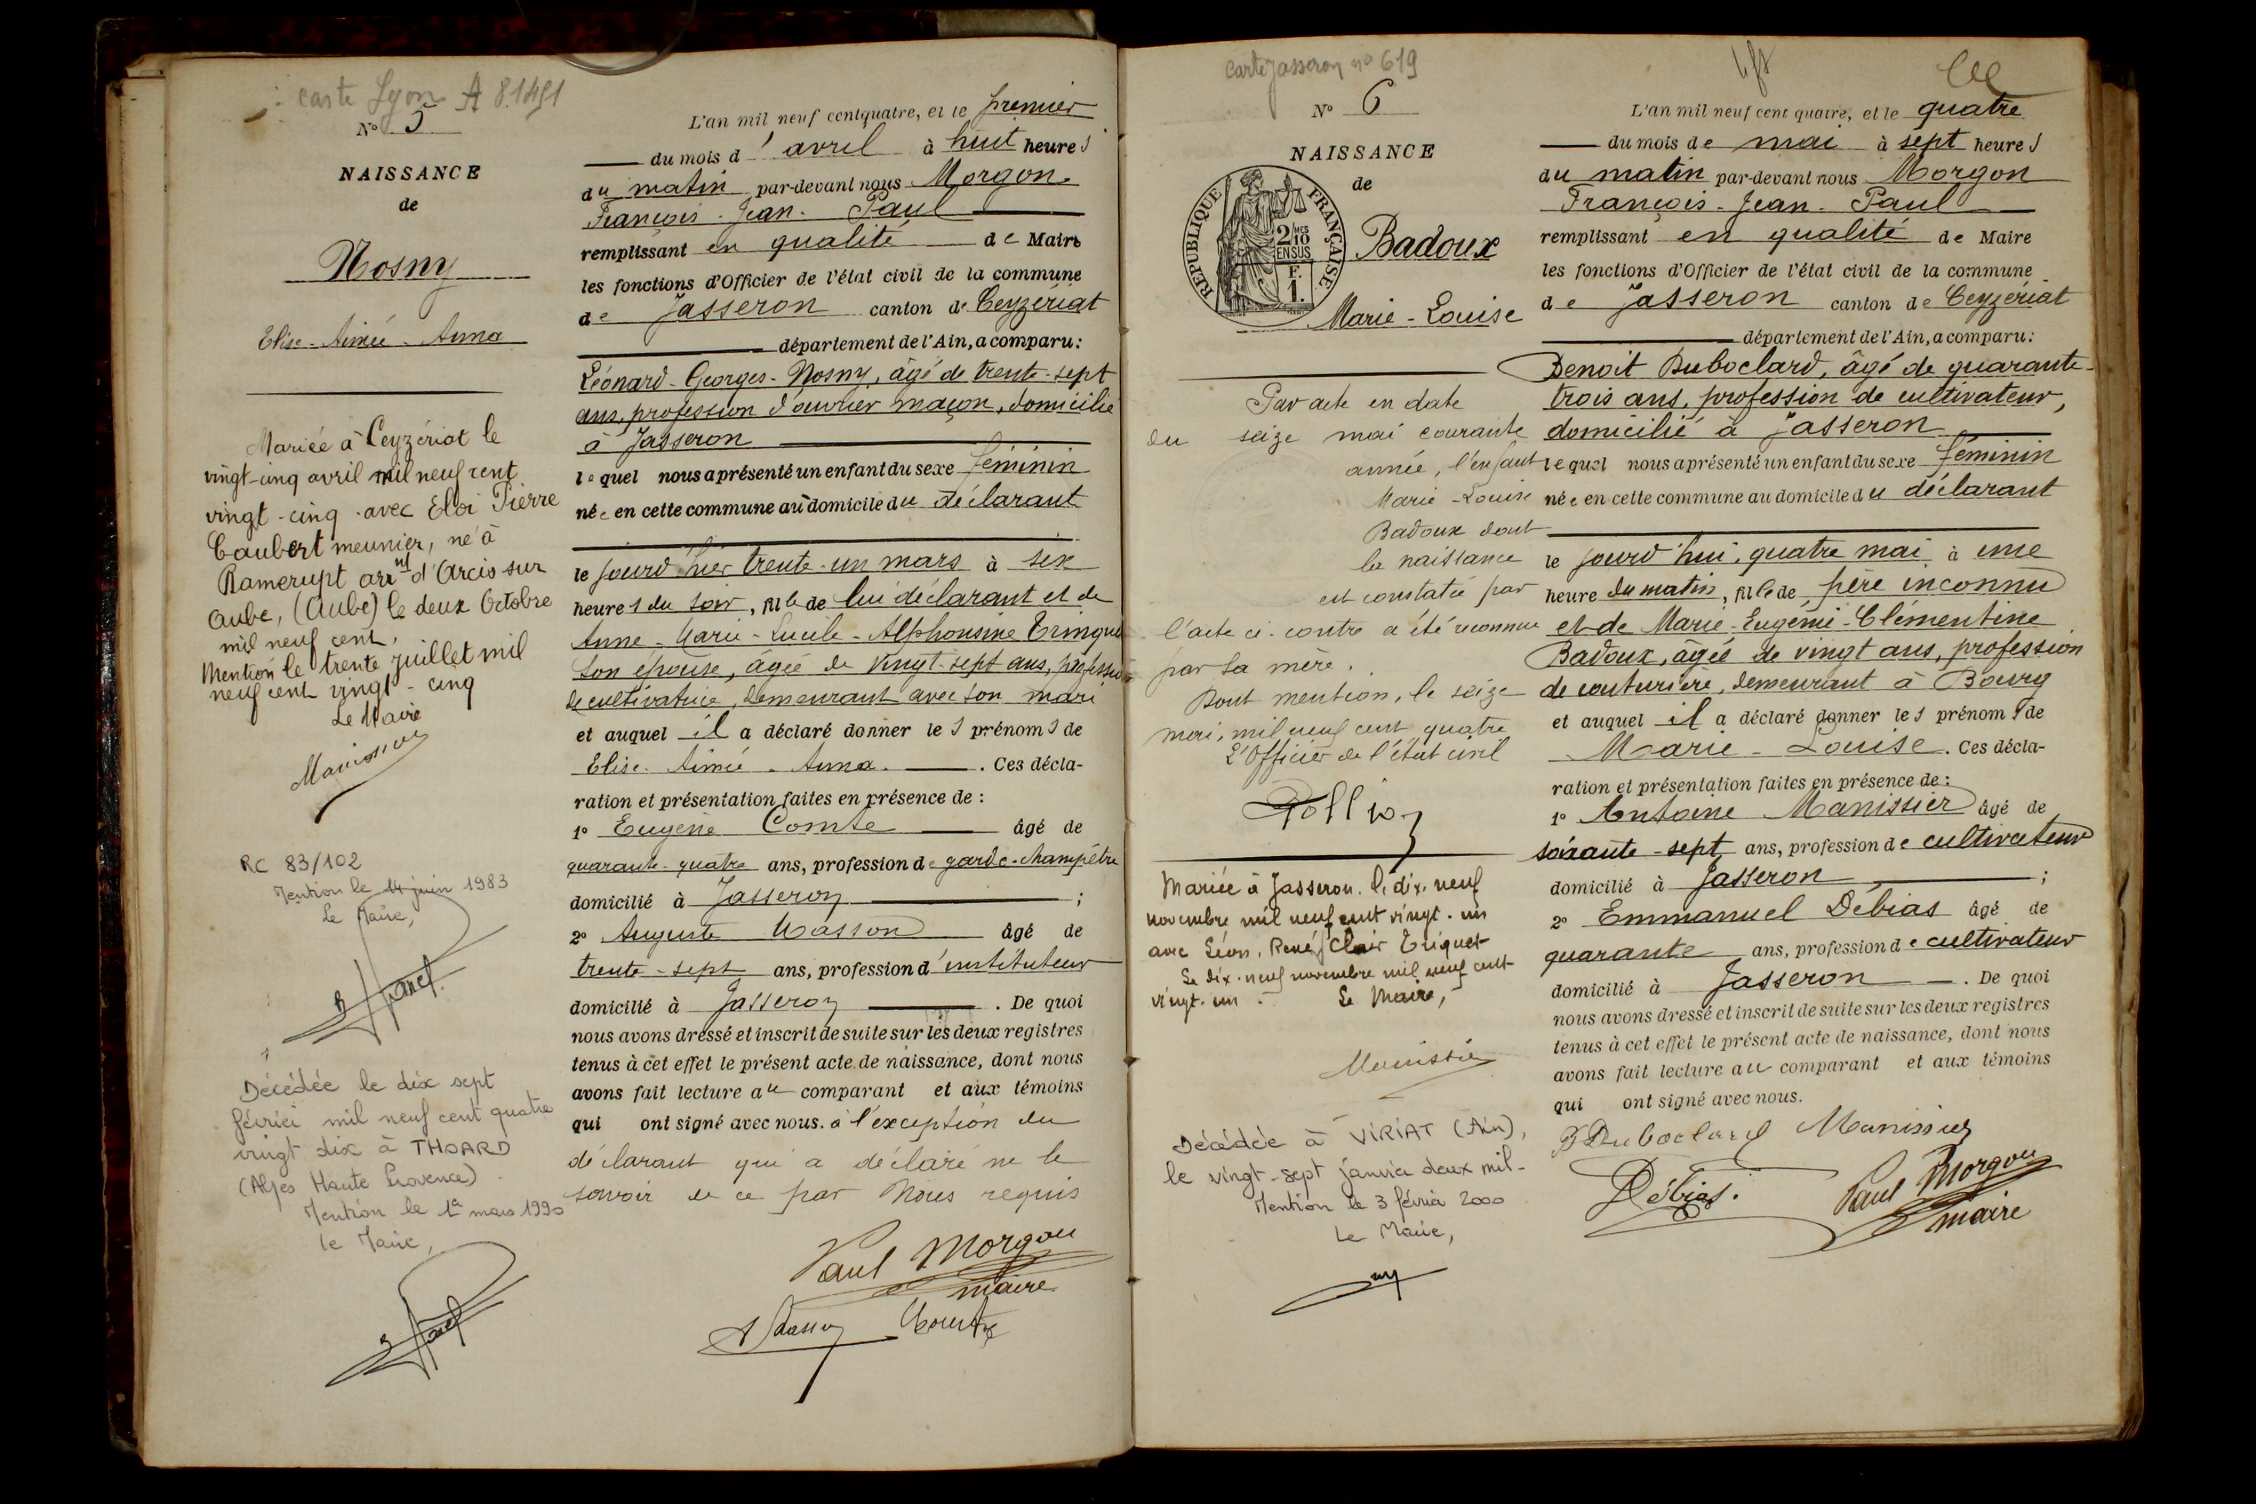 carte Lyon A 81491
N° 5
NAISSANCE
de
Nosny
Elise - Aimée - Anna
Mariée à Ceyzériat le
vingt-cinq avril mil neuf cent
vingt-cinq avec Eloi Pierre
Caubert meunier, né à
Ramerupt arr.nt d'Arcis sur
Aube, (Aube) le deux Octobre
mil neuf cent,
Mention le trente juillet mil
neuf cent vingt-cinq
Le Maire
RC 83/102
Mention le 14 juin 1983
Le Maire,
Décédée le dix sept
février mil neuf cent quatre
vingt dix à THOARD
(Alpes Haute Provence)
Mention le 1er mars 1990
Le Maire,
L'an mil neuf cent quatre, et le premier
du mois d'avril à huit heures
du matin par-devant nous Morgon
François - Jean - Paul
remplissant en qualité de Maire
les fonctions d'Officier de l'état civil de la commune
de Jasseron canton de Ceyzériat
département de l'Ain, a comparu:
Léonard - Georges - Nosny, âgé de trente-sept
ans, profession d'ouvrier maçon, domicilié
à Jasseron
lequel nous a présenté un enfant du sexe féminin
née en cette commune au domicile du déclarant
le jourd'hier trente-un mars à six
heures du soir, fille de lui déclarant et de
Anne - Marie - Lucile - Alphonsine
son épouse, âgée de vingt-sept ans, profession
de cultivatrice, demeurant avec son mari
et auquel il a déclaré donner les prénoms de
Elise - Aimée - Anna. Ces décla-
ration et présentation faites en présence de :
1° Eugène Comte âgé de
quarante-quatre ans, profession de garde-champêtre
domicilié à Jasseron ;
2° Auguste Masson âgé de
trente-sept ans, profession d'instituteur
domicilié à Jasseron. De quoi
nous avons dressé et inscrit de suite sur les deux registres
tenus à cet effet le présent acte de naissance, dont nous
avons fait lecture au comparant et aux témoins
qui ont signé avec nous. à l'exception du
déclarant qui a déclaré ne le
savoir de ce par Nous requis
Paul Morgon
maire
A Masson Comte
carte Jasseron n° 619
N° 6
NAISSANCE
de
RÉPUBLIQUE FRANÇAISE
2/10 MES
EN SUS
F.
1.
Badoux
Marie - Louise
Par acte en date
du seize mai courante
année, l'enfant
Marie - Louise
Badoux dont
la naissance
est constatée par
l'acte ci-contre a été reconnue
par sa mère.
Dont mention, le seize
mai, mil neuf cent quatre
L'Officier de l'état civil
Mariée à Jasseron. le dix-neuf
novembre mil neuf cent vingt-un
avec Léon, René, Clair Triquet
Le dix-neuf novembre mil neuf cent
vingt-un. Le Maire,
Manissier
Décédée à VIRIAT (Ain),
le vingt-sept janvier deux mil-
Mention le 3 février 2000
Le Maire,
L'an mil neuf cent quatre, et le quatre
du mois de mai à sept heures
du matin par-devant nous Morgon
François - Jean - Paul
remplissant en qualité de Maire
les fonctions d'Officier de l'état civil de la commune
de Jasseron canton de Ceyzériat
département de l'Ain, a comparu:
Benoit Duboclard, âgé de quarante-
trois ans, profession de cultivateur,
domicilié à Jasseron
lequel nous a présenté un enfant du sexe féminin
née en cette commune au domicile du déclarant
le jourd'hui, quatre mai à une
heure du matin, fille de père inconnu
et de Marie - Eugénie - Clémentine
Badoux, âgée de vingt ans, profession
de couturière, demeurant à Bourg
et auquel il a déclaré donner les prénoms de
Marie - Louise. Ces décla-
ration et présentation faites en présence de :
1° Antoine Manissier âgé de
soixante-sept ans, profession de cultivateur
domicilié à Jasseron ;
2° Emmanuel Débias âgé de
quarante ans, profession de cultivateur
domicilié à Jasseron. De quoi
nous avons dressé et inscrit de suite sur les deux registres
tenus à cet effet le présent acte de naissance, dont nous
avons fait lecture au comparant et aux témoins
qui ont signé avec nous.
B Duboclard Manissier
Débias. Paul Morgon
maire